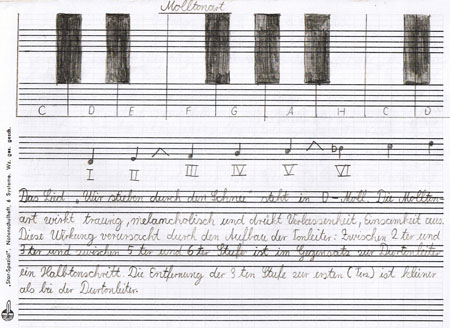 Molltonart
C D E F G A H C D
I II III IV V VI
Das Lied „Wir stieben durch den Schnee" steht in D-Moll. Die Mollton-
art wirkt traurig, melancholisch und drückt Verlassenheit, Einsamkeit aus.
Diese Wirkung verursacht durch den Aufbau der Tonleiter: Zwischen 2 ter und
3 ter und zwischen 5 ter und 6 ter Stufe ist im Gegensatz zur Durtonleiter
ein Halbtonschritt. Die Entfernung der 3 ten Stufe zur ersten (Terz) ist kleiner
als bei der Durtonleiter.
„Star-Spezial", Notenschulheft, 6 Systeme, Wz. ges. gesch.